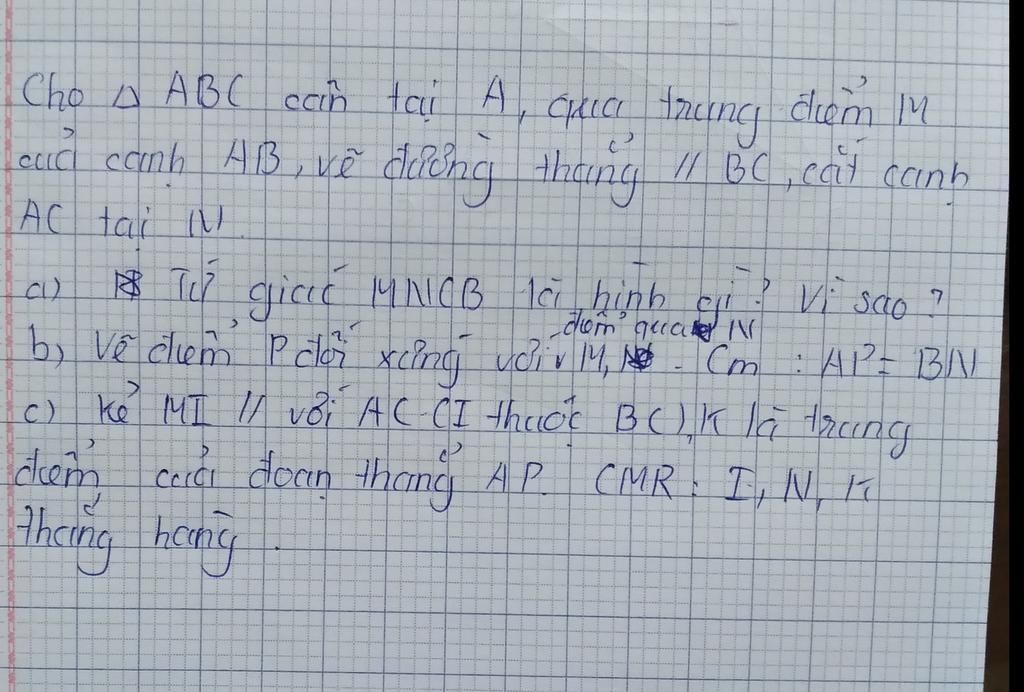 Cho Δ ABC cân tại A, qua trung điểm M
của cạnh AB, vẽ đường thẳng // BC, cắt cạnh
AC tại N
a) Tứ giác MNCB là hình gì? Vì sao?
điểm qua N
b) Vẽ điểm P đối xứng với M, . Cm : AP = BN
c) Kẻ MI // với AC (I thuộc BC), K là trung
điểm của đoạn thẳng AP. CMR : I, N, K
thẳng hàng .